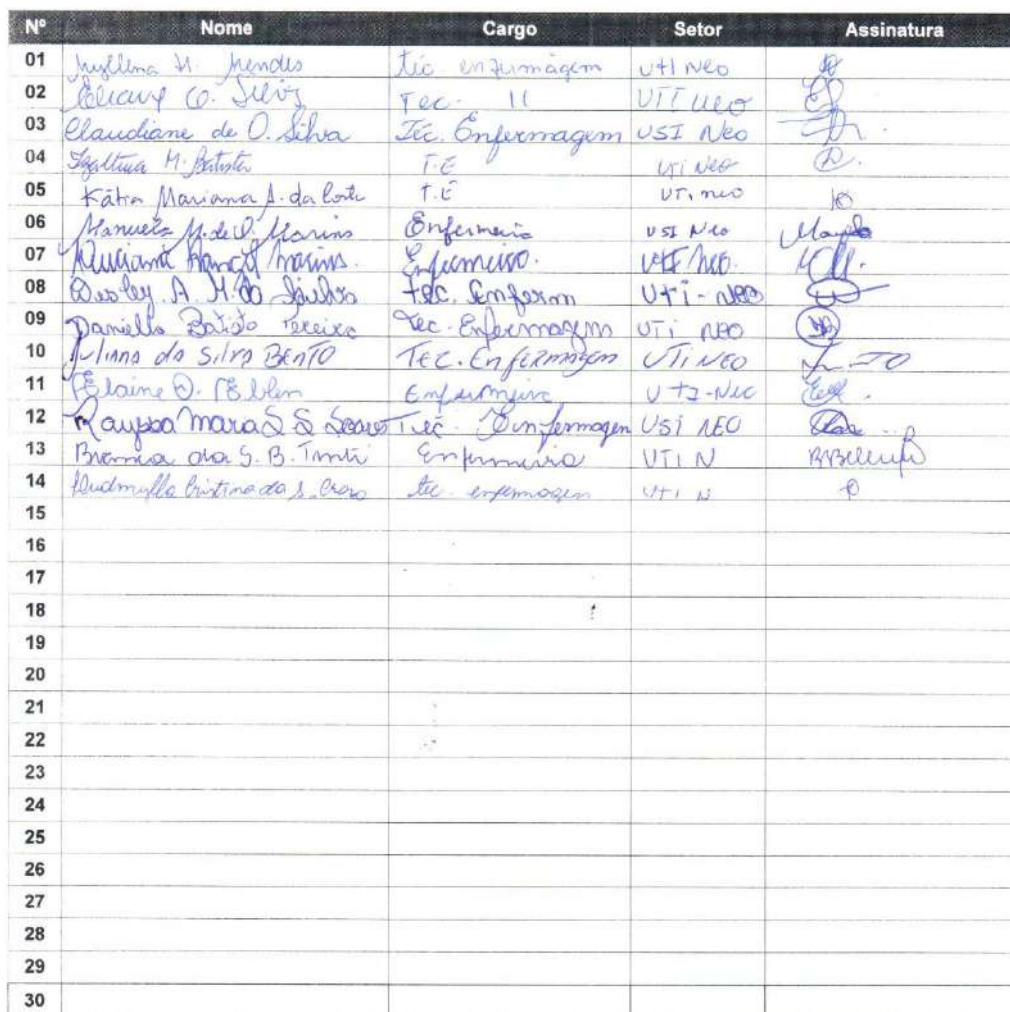 Nº Nome Cargo Setor Assinatura
01 H. Mendes tec enfermagem UTI Neo
02 Tec. 11 UTI neo
03 Claudiane de O. Silva Téc. Enfermagem USI Neo
04 M. Batista T.E UTI Neo
05 Kátia Mariana A. da Costa T.E UTI neo
06 Manuela M. de O. Marins Enfermeira USI Neo
07 Marins. Enfermeiro. UTI Neo.
08 Wesley. A. M. Tec. Enferm UTI-NEO
09 Daniella Batista Pereira Tec. Enfermagem UTi NEO
10 Juliana da Silva BENTO TEC. Enfermagem UTI NEO
11 Elaine D. Enfermeira UTI-Neo
12 Rayssa Mara S S Soares Tec. Enfermagem USI NEO
13 da S. B. Enfermeira UTI N
14 Cristina da S. tec. enfermagem UTI N
15
16
17
18
19
20
21
22
23
24
25
26
27
28
29
30